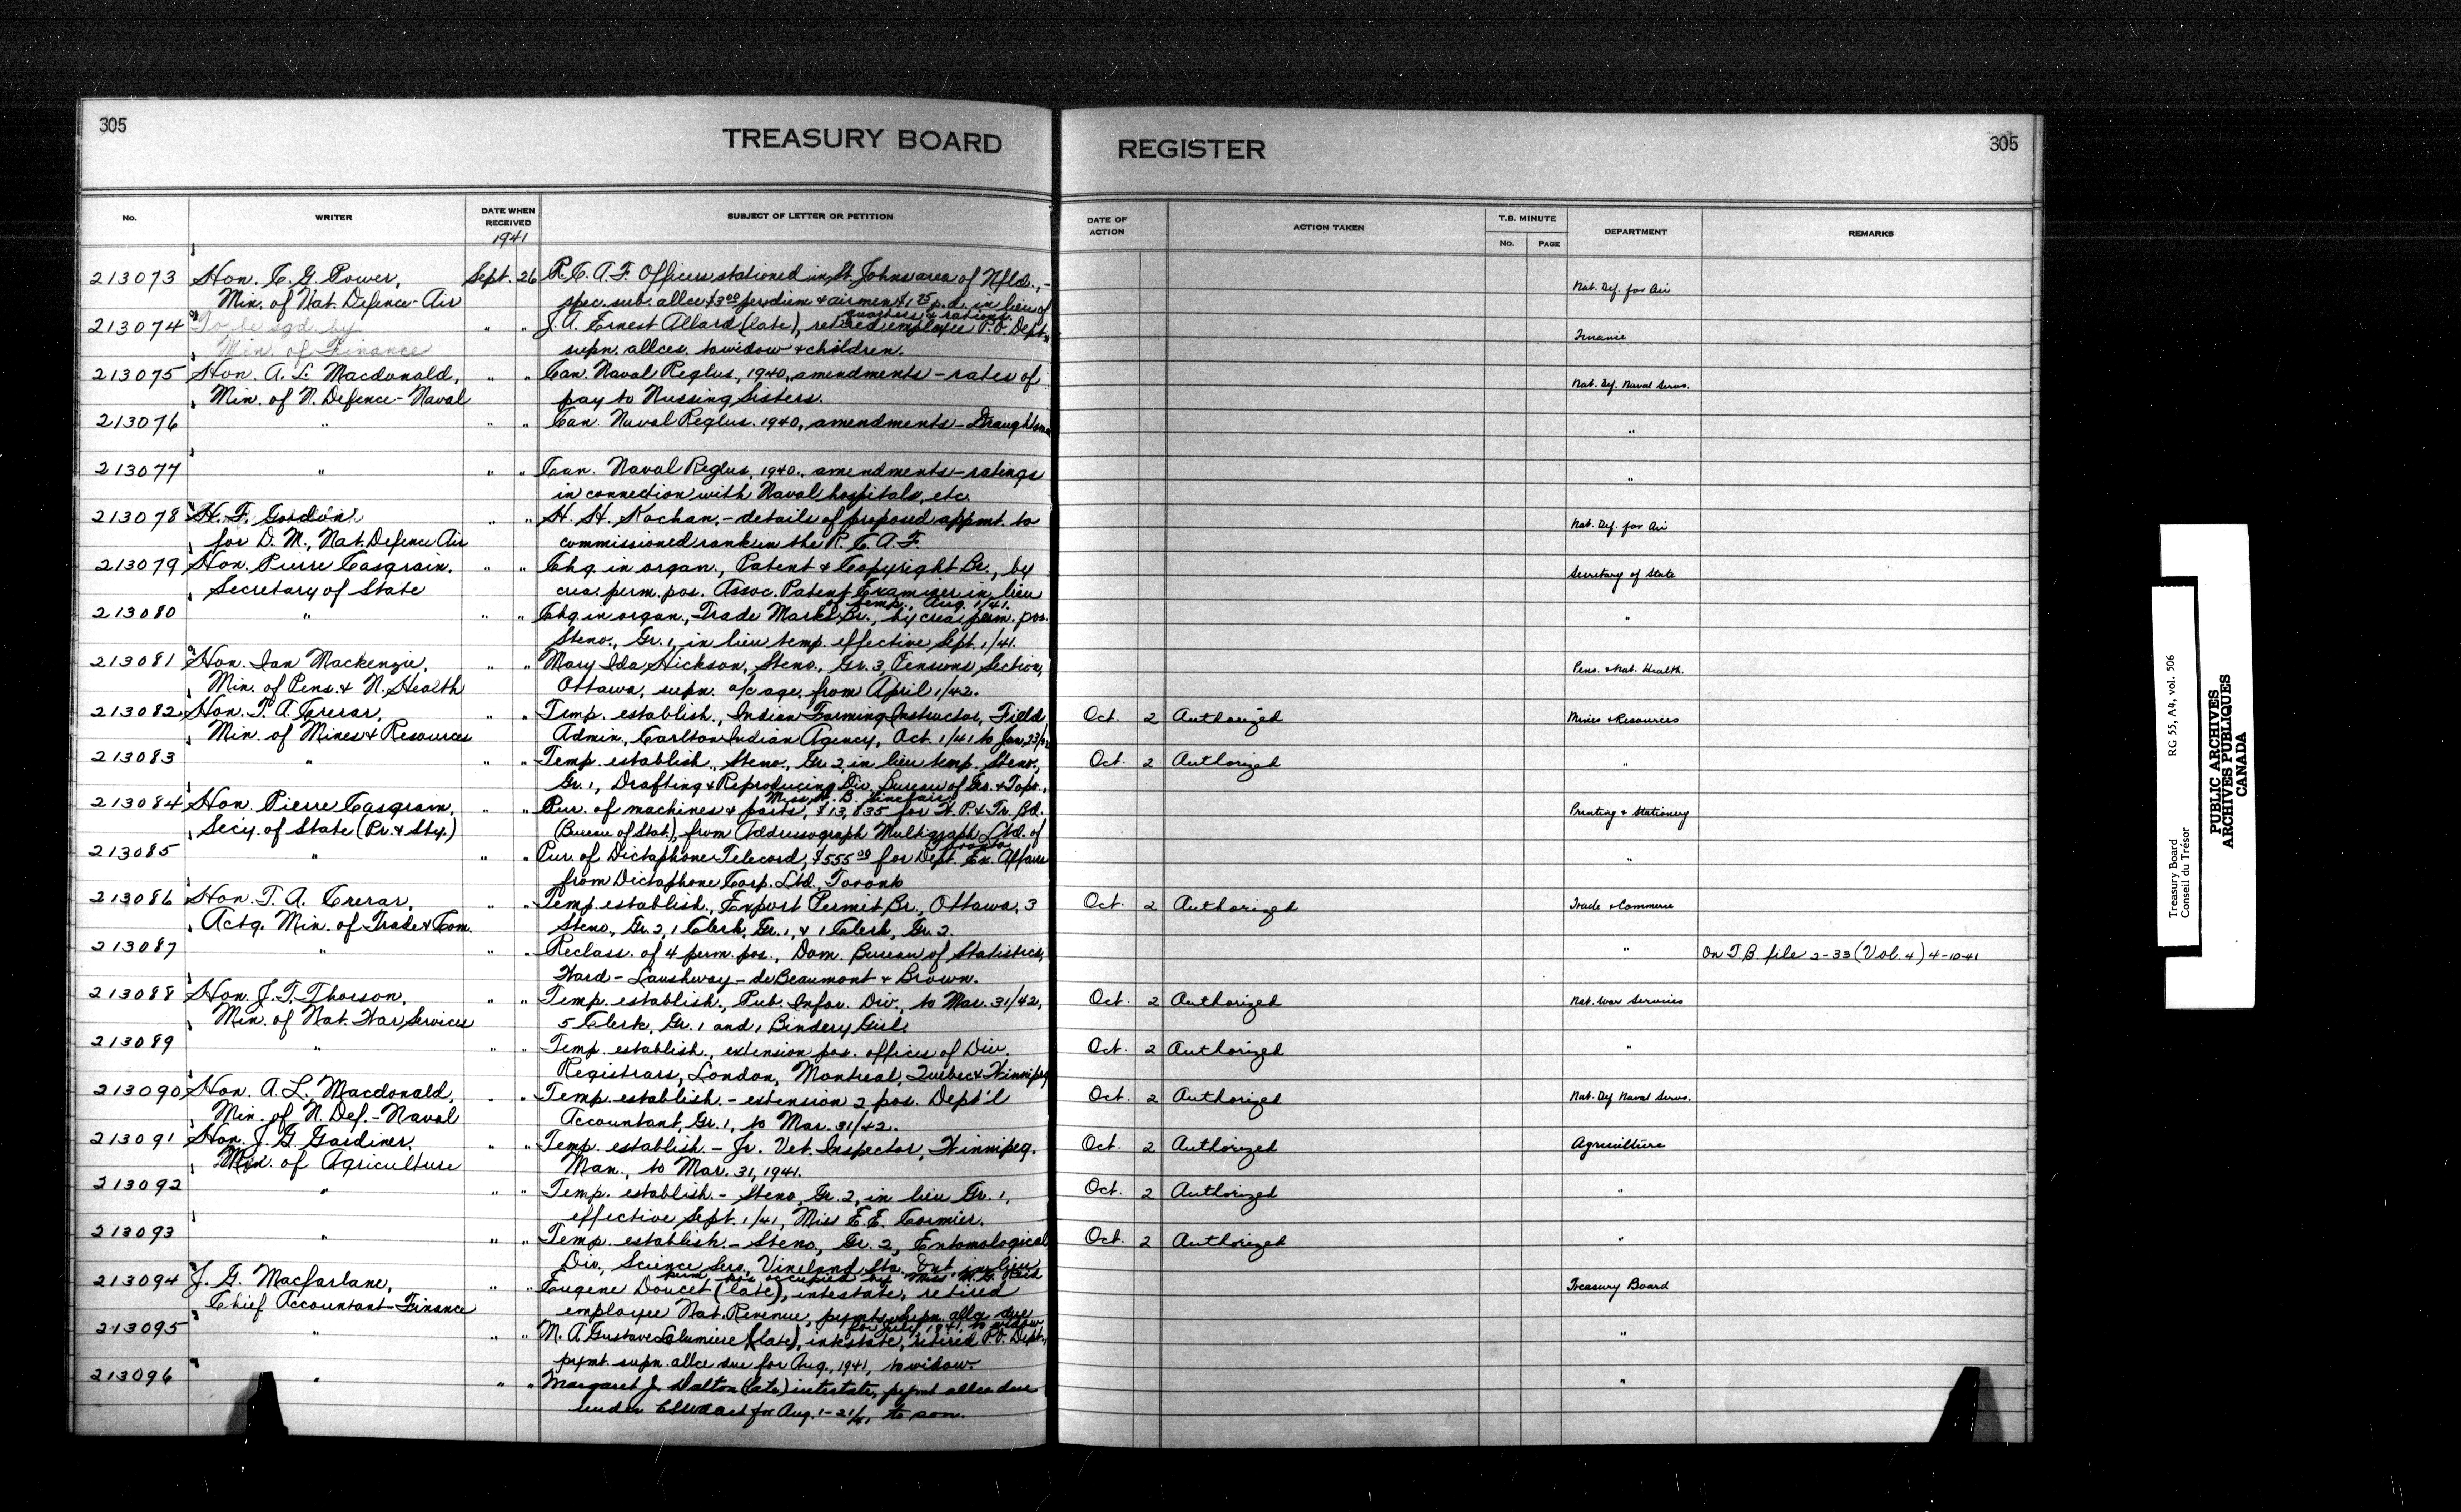 305
TREASURY BOARD
REGISTER
305
No.
WRITER
DATE WHEN RECEIVED
SUBJECT OF LETTER OR PETITION
DATE OF ACTION
ACTION TAKEN
T.B. MINUTE
No.
PAGE
DEPARTMENT
REMARKS
1941
213073 Hon. C. G. Power, Sept. 26 R.C.A.F. Officers stationed in St. Johns area of Nfld., - Nat. Def. for Air
Min. of Nat. Defence - Air spec. sub. allce $3.00 per diem & airmen $1.75 p.d. in lieu of
quarters & rations.
213074 To be sgd. by " " J. A. Ernest Allard (late), retired employee P.O. Dept., Finance
Min. of Finance supn. allces. to widow & children.
213075 Hon. A. L. Macdonald, " " Can. Naval Reglns, 1940, amendments - rates of Nat. Def. Naval Servs.
Min. of N. Defence - Naval pay to Nursing Sisters.
213076 " " " Can. Naval Reglns. 1940, amendments - Draughtsmen "
213077 " " " Can. Naval Reglns, 1940, amendments - ratings "
in connection with Naval hospitals, etc.
213078 H. F. Gordon, " " H. H. Kochan, - details of proposed appmt. to Nat. Def. for Air
for D. M., Nat. Defence Air commissioned rank in the R.C.A.F.
213079 Hon. Pierre Casgrain, " " Chg. in organ., Patent & Copyright Br., by Secretary of State
Secretary of State crea. perm. pos. Assoc. Patent Examiner in lieu
of temp., Aug. 1/41.
213080 " " " Chg. in organ., Trade Marks Br., by crea. perm. pos. "
Steno., Gr. 1, in lieu temp. effective Sept. 1/41.
213081 Hon. Ian Mackenzie, " " Mary Ida Hickson, Steno., Gr. 3, Pensions Section, Pens. & Nat. Health.
Min. of Pens. & N. Health Ottawa, supn. a/c age, from April 1/42.
213082 Hon. T. A. Crerar, " " Temp. establish., Indian Farming Instructor, Field Oct. 2 Authorized Mines & Resources
Min. of Mines & Resources Admin., Carlton Indian Agency, Oct. 1/41 to Jan. 23/42
213083 " " " Temp. establish., Steno., Gr. 2 in lieu temp. Steno., Oct. 2 Authorized "
Gr. 1, Drafting & Reproducing Div. Bureau of Geo. & Topo.,
Miss B. Sinclair
213084 Hon. Pierre Casgrain, " " Pur. of machines & parts, $13,835 for W.P. & Tr. Bd. Printing & Stationery
Secy. of State (Pr. & Sty.) (Bureau of Stat.), from Addressograph Multigraph Ltd. of
Toronto
213085 " " " Pur. of Dictaphone Telecord, $555.00 for Dept. Ex. Affairs "
from Dictaphone Corp. Ltd., Toronto
213086 Hon. T. A. Crerar, " " Temp. establish., Export Permit Br., Ottawa, 3 Oct. 2 Authorized Trade & Commerce
Actg. Min. of Trade & Com. Steno., Gr. 2, 1 Clerk, Gr. 1, & 1 Clerk, Gr. 2.
213087 " " " Reclass. of 4 perm. pos., Dom. Bureau of Statistics, " On T.B. file 2-33 (Vol. 4) 4-10-41
Ward - Laushway - deBeaumont & Brown.
213088 Hon. J. T. Thorson, " " Temp. establish., Pub. Infor. Div., to Mar. 31/42, Oct. 2 Authorized Nat. War Services
Min. of Nat. War Services 5 Clerk, Gr. 1 and 1 Bindery Girl.
213089 " " " Temp. establish., extension pos. offices of Div. Oct. 2 Authorized "
Registrars, London, Montreal, Quebec & Winnipeg
213090 Hon. A. L. Macdonald, " " Temp. establish. - extension 2 pos. Dept'l Oct. 2 Authorized Nat. Def Naval Servs.
Min. of N. Def. - Naval Accountant, Gr. 1, to Mar. 31/42.
213091 Hon. J. G. Gardiner, " " Temp. establish. - Jr. Vet. Inspector, Winnipeg. Oct. 2 Authorized Agriculture
Min. of Agriculture Man., to Mar. 31, 1941.
213092 " " " Temp. establish. - Steno, Gr. 2, in lieu Gr. 1, Oct. 2 Authorized "
effective Sept. 1/41, Miss E. E. Cormier.
213093 " " " Temp. establish. - Steno, Gr. 2, Entomological Oct. 2 Authorized "
Div., Science Serv., Vineland Sta. Ont. in lieu
perm. pos. occupied by Miss M. G. Reid
213094 J. G. Macfarlane, " " Eugene Doucet (late), intestate, retired Treasury Board
Chief Accountant - Finance employee Nat. Revenue, pymt supn. allce due
for July, 1941, to widow
213095 " " " M. A. Gustave Lalumiere (late), intestate, retired P.O. Dept., "
pymt. supn. allce due for Aug., 1941, to widow.
213096 " " " Margaret J. Dalton (late) intestate, pymt allce due "
under Act for Aug. 1-21/41, to son.
Treasury Board RG 55, A4, vol. 506
Conseil du Trésor
PUBLIC ARCHIVES
ARCHIVES PUBLIQUES
CANADA